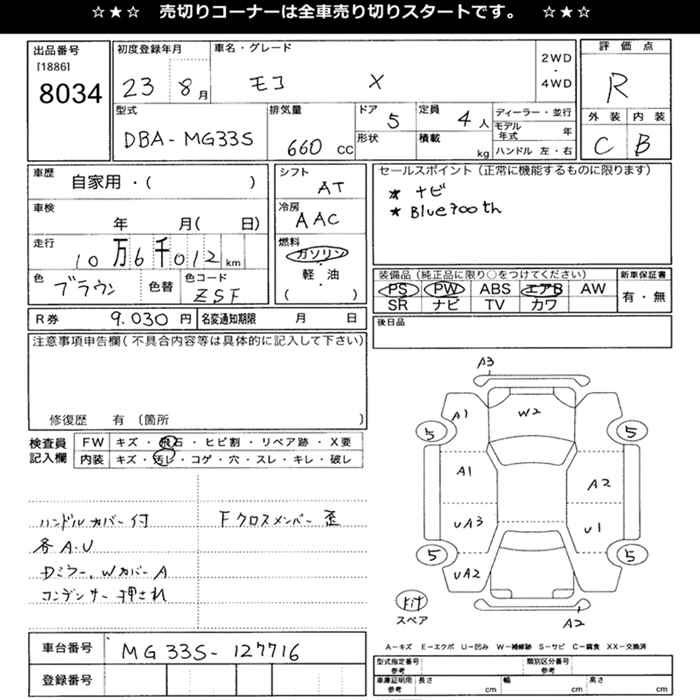 ☆★☆ 売切りコーナーは全車売り切りスタートです。 ☆★☆
出品番号
[1886]
8034
初度登録年月
23 8月
車名・グレード
モコ X
2WD
・
4WD
評価点
R
外装 内装
C B
型式
DBA-MG33S
排気量
660 cc
ドア 5
形状
定員 4人
積載 kg
ディーラー・並行
モデル年式 年
ハンドル 左・右
車歴
自家用・( )
車検
年 月( 日)
走行
10万6千012 km
色
ブラウン
色替
色コード
ZSF
シフト
AT
冷房
AAC
燃料
ガソリン
・
軽・油
( )
セールスポイント(正常に機能するものに限ります)
★ ナビ
★ Blue700th
装備品(純正品に限り○をつけてください)
PS PW ABS エアB AW
SR ナビ TV カワ
新車保証書
有・無
R券 9.030円
名変通知期限 月 日
後日品
注意事項申告欄(不具合内容等は具体的に記入して下さい)
修復歴 有(箇所
検査員記入欄
FW キズ・飛石・ヒビ割・リペア跡・X要
内装 キズ・汚レ・コゲ・穴・スレ・キレ・破レ
ハンドルカバー付
各A.U
Dミラー、WカバーA
コンデンサー押され
Fクロスメンバー歪
A3
A1 W2
5 5
A1 A2
UA3 U1
5 5
UA2
A2
キット
スペア
A-キズ E-エクボ U-凹み W-補修跡 S-サビ C-腐食 XX-交換済
車台番号
MG33S-127716
登録番号
型式指定番号
参考
類別区分番号
参考
車庫証明用
参考
長さ cm 幅 cm 高さ cm